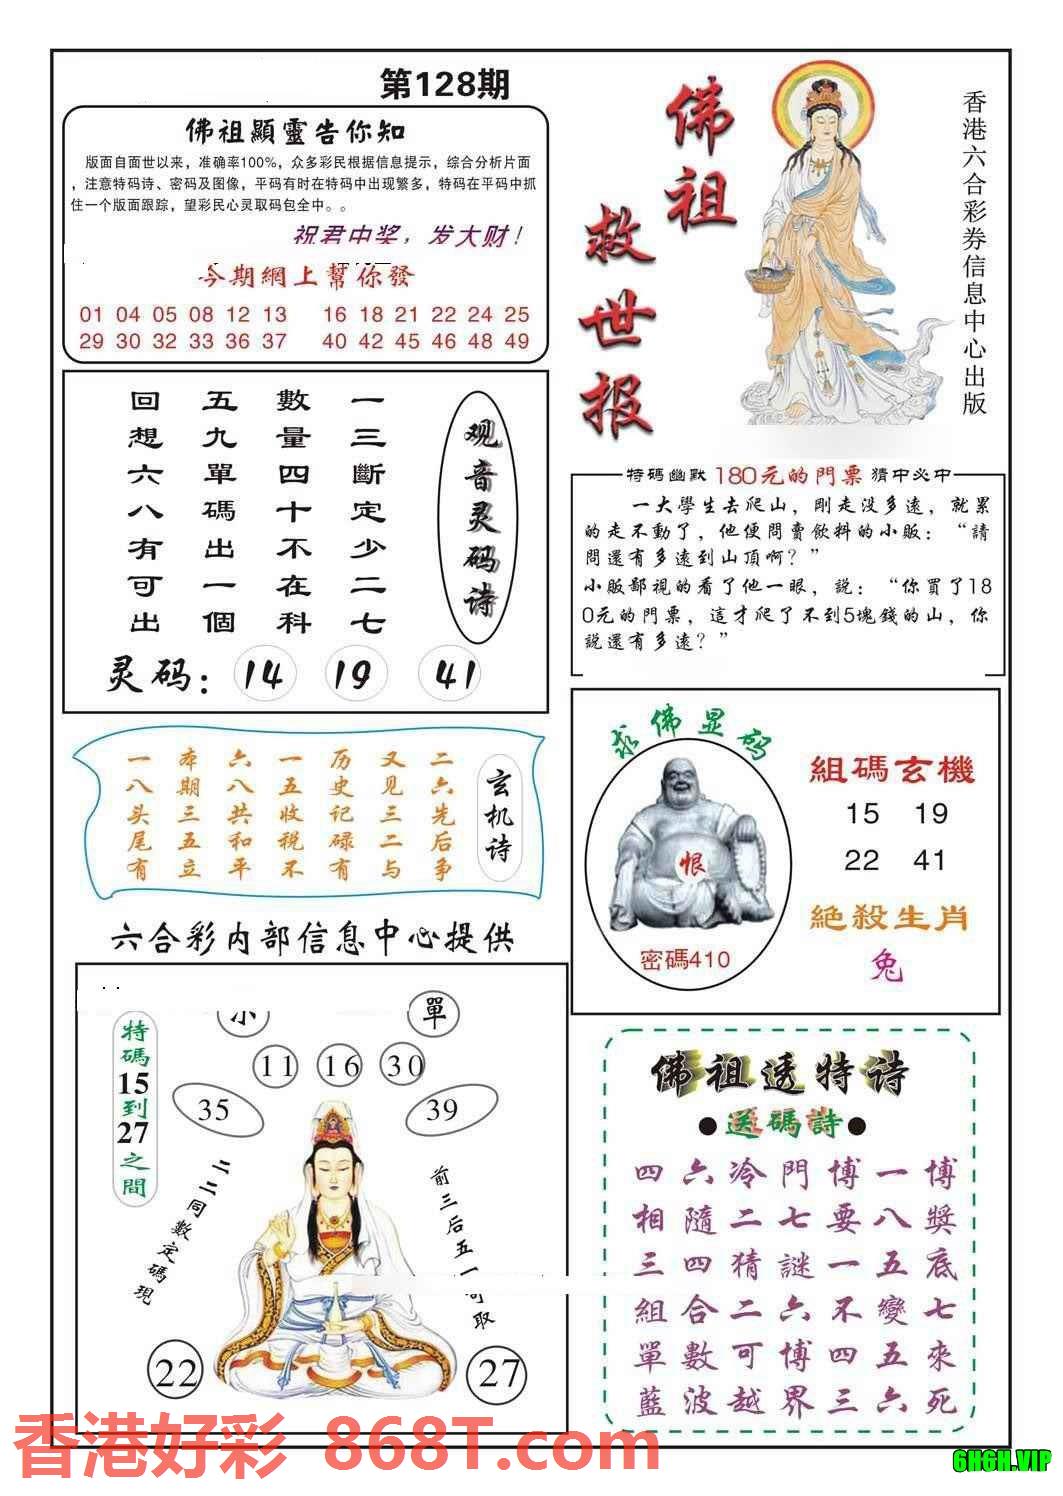 第128期
佛祖顯靈告你知
版面自面世以来，准确率100%，众多彩民根据信息提示，综合分析片面
，注意特码诗、密码及图像，平码有时在特码中出现繁多，特码在平码中抓
住一个版面跟踪，望彩民心灵取码包全中。。
祝君中奖，发大财！
今期網上幫你發
01 04 05 08 12 13 16 18 21 22 24 25
29 30 32 33 36 37 40 42 45 46 48 49
佛祖
救世报
香港六合彩券信息中心出版
观音灵码诗
一三斷定少二七
數量四十不在科
五九單碼出一個
回想六八有可出
灵码：14 19 41
特碼幽默 180元的門票 猜中必中
一大學生去爬山，剛走没多遠，就累
的走不動了，他便問賣飲料的小販：“請
問還有多遠到山頂啊？”
小販鄙視的看了他一眼，説：“你買了18
0元的門票，這才爬了不到5塊錢的山，你
説還有多遠？”
玄机诗
二六先后争
又见三二与
历史记碌有
一五收税不
六八共和平
本期三五立
一八头尾有
求佛显码
恨
密碼410
組碼玄機
15 19
22 41
絕殺生肖
兔
六合彩内部信息中心提供
單
特碼15到27之間
11 16 30
35 39
二二同數定碼現
前三后五一
取
22 27
佛祖透特诗
●送碼詩●
四六冷門博一博
相隨二七要八獎
三四猜謎一五底
組合二六不變七
單數可博四五來
藍波越界三六死
香港好彩 868T.com
6H6H.VIP